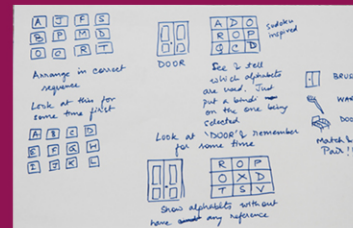 A J F S
B P M D
O O R T
Arrange in correct
sequence
Look at this for
some time first
A B C D
E F G H
I J K L
DOOR
A D O
R O P
Q C D
sudoku
inspired
See & tell
which alphabets
are used. Just
put a
on the one being
selected
Look at 'DOOR' & remember
for some time
R O P
O X D
T S V
Show alphabets without
have any reference
BRU
WA
DOO
Match &
Pair!